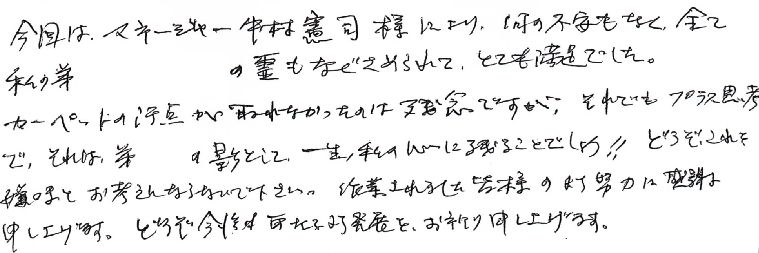 今回は、マネージャー中村憲司様により、何の不安もなく、全て
私の弟 の霊もなぐさめられて、とても満足でした。
カーペットの汚点が取れなかったのは残念ですが、それでもプラス思考
で、それは、弟 の影として、一生、私の心に残ることでしょう!! どうぞ、これを
嫌味とお考えにならないで下さい。 作業されました皆様の御努力に感謝
申し上げます。 どうぞ今後の 御発展を、お祈り申し上げます。